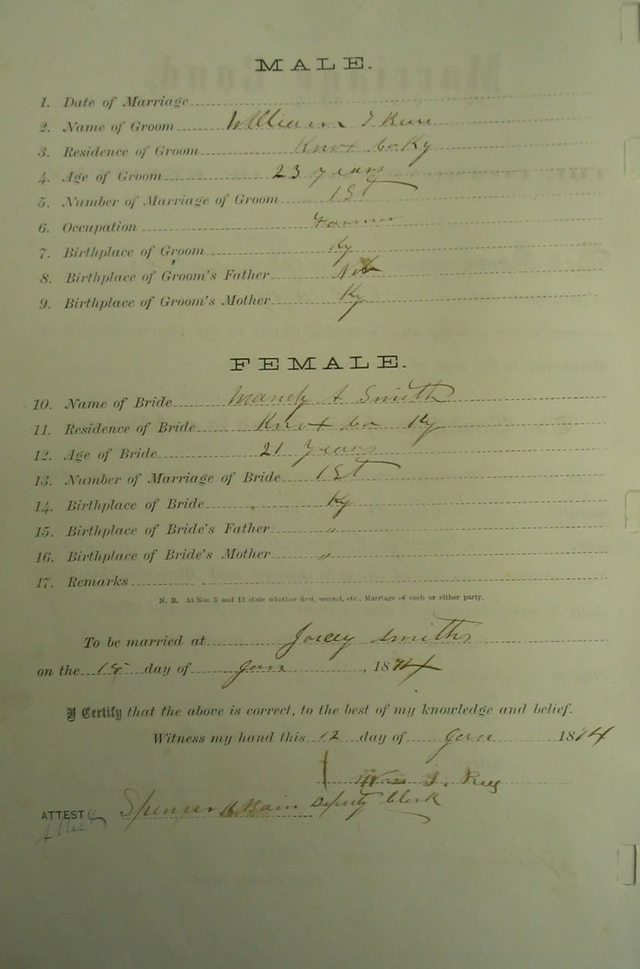 MALE.
1. Date of Marriage
2. Name of Groom William J
3. Residence of Groom Knox Co Ky
4. Age of Groom 23 years
5. Number of Marriage of Groom 1ST
6. Occupation Farmer
7. Birthplace of Groom Ky
8. Birthplace of Groom's Father
9. Birthplace of Groom's Mother Ky
FEMALE.
10. Name of Bride Mandy A Smith
11. Residence of Bride Knox Co Ky
12. Age of Bride 21 years
13. Number of Marriage of Bride 1ST
14. Birthplace of Bride Ky
15. Birthplace of Bride's Father "
16. Birthplace of Bride's Mother "
17. Remarks
N. B. At Nos. 5 and 13 state whether first, second, etc., Marriage of each or either party.
To be married at Smiths
on the day of Jan , 1874
I Certify that the above is correct, to the best of my knowledge and belief.
Witness my hand this 12 day of Jan 1874
Wm J.
ATTEST Spencer Deputy Clerk